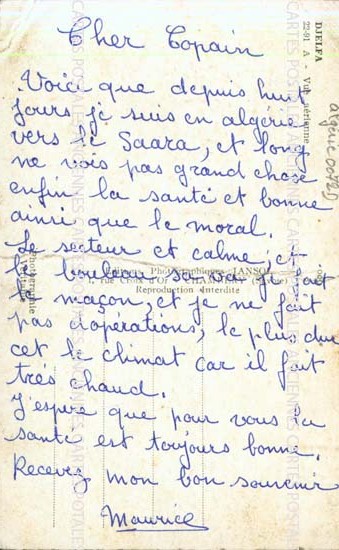 Cher Copain
Voici que depuis huit
jours je suis en algérie
vers le Saara, et long
ne vois pas grand chose
enfin la santé et bonne
ainsi que le moral.
Le secteur et calme, et
le boulot sa va je fait
le maçon, et je ne fait
pas d'opérations, le plus dur
cet le climat car il fait
très chaud.
J'espère que pour vous la
santé est toujours bonne.
Recevez mon bon souvenir
Maurice
DJELFA
22-91 A - Vue aérienne
Editions Photographiques JANSOL
1, rue Croix d'Or - CHAMBERY
Reproduction interdite
Photographie
CARTES POSTALES ANCIENNES